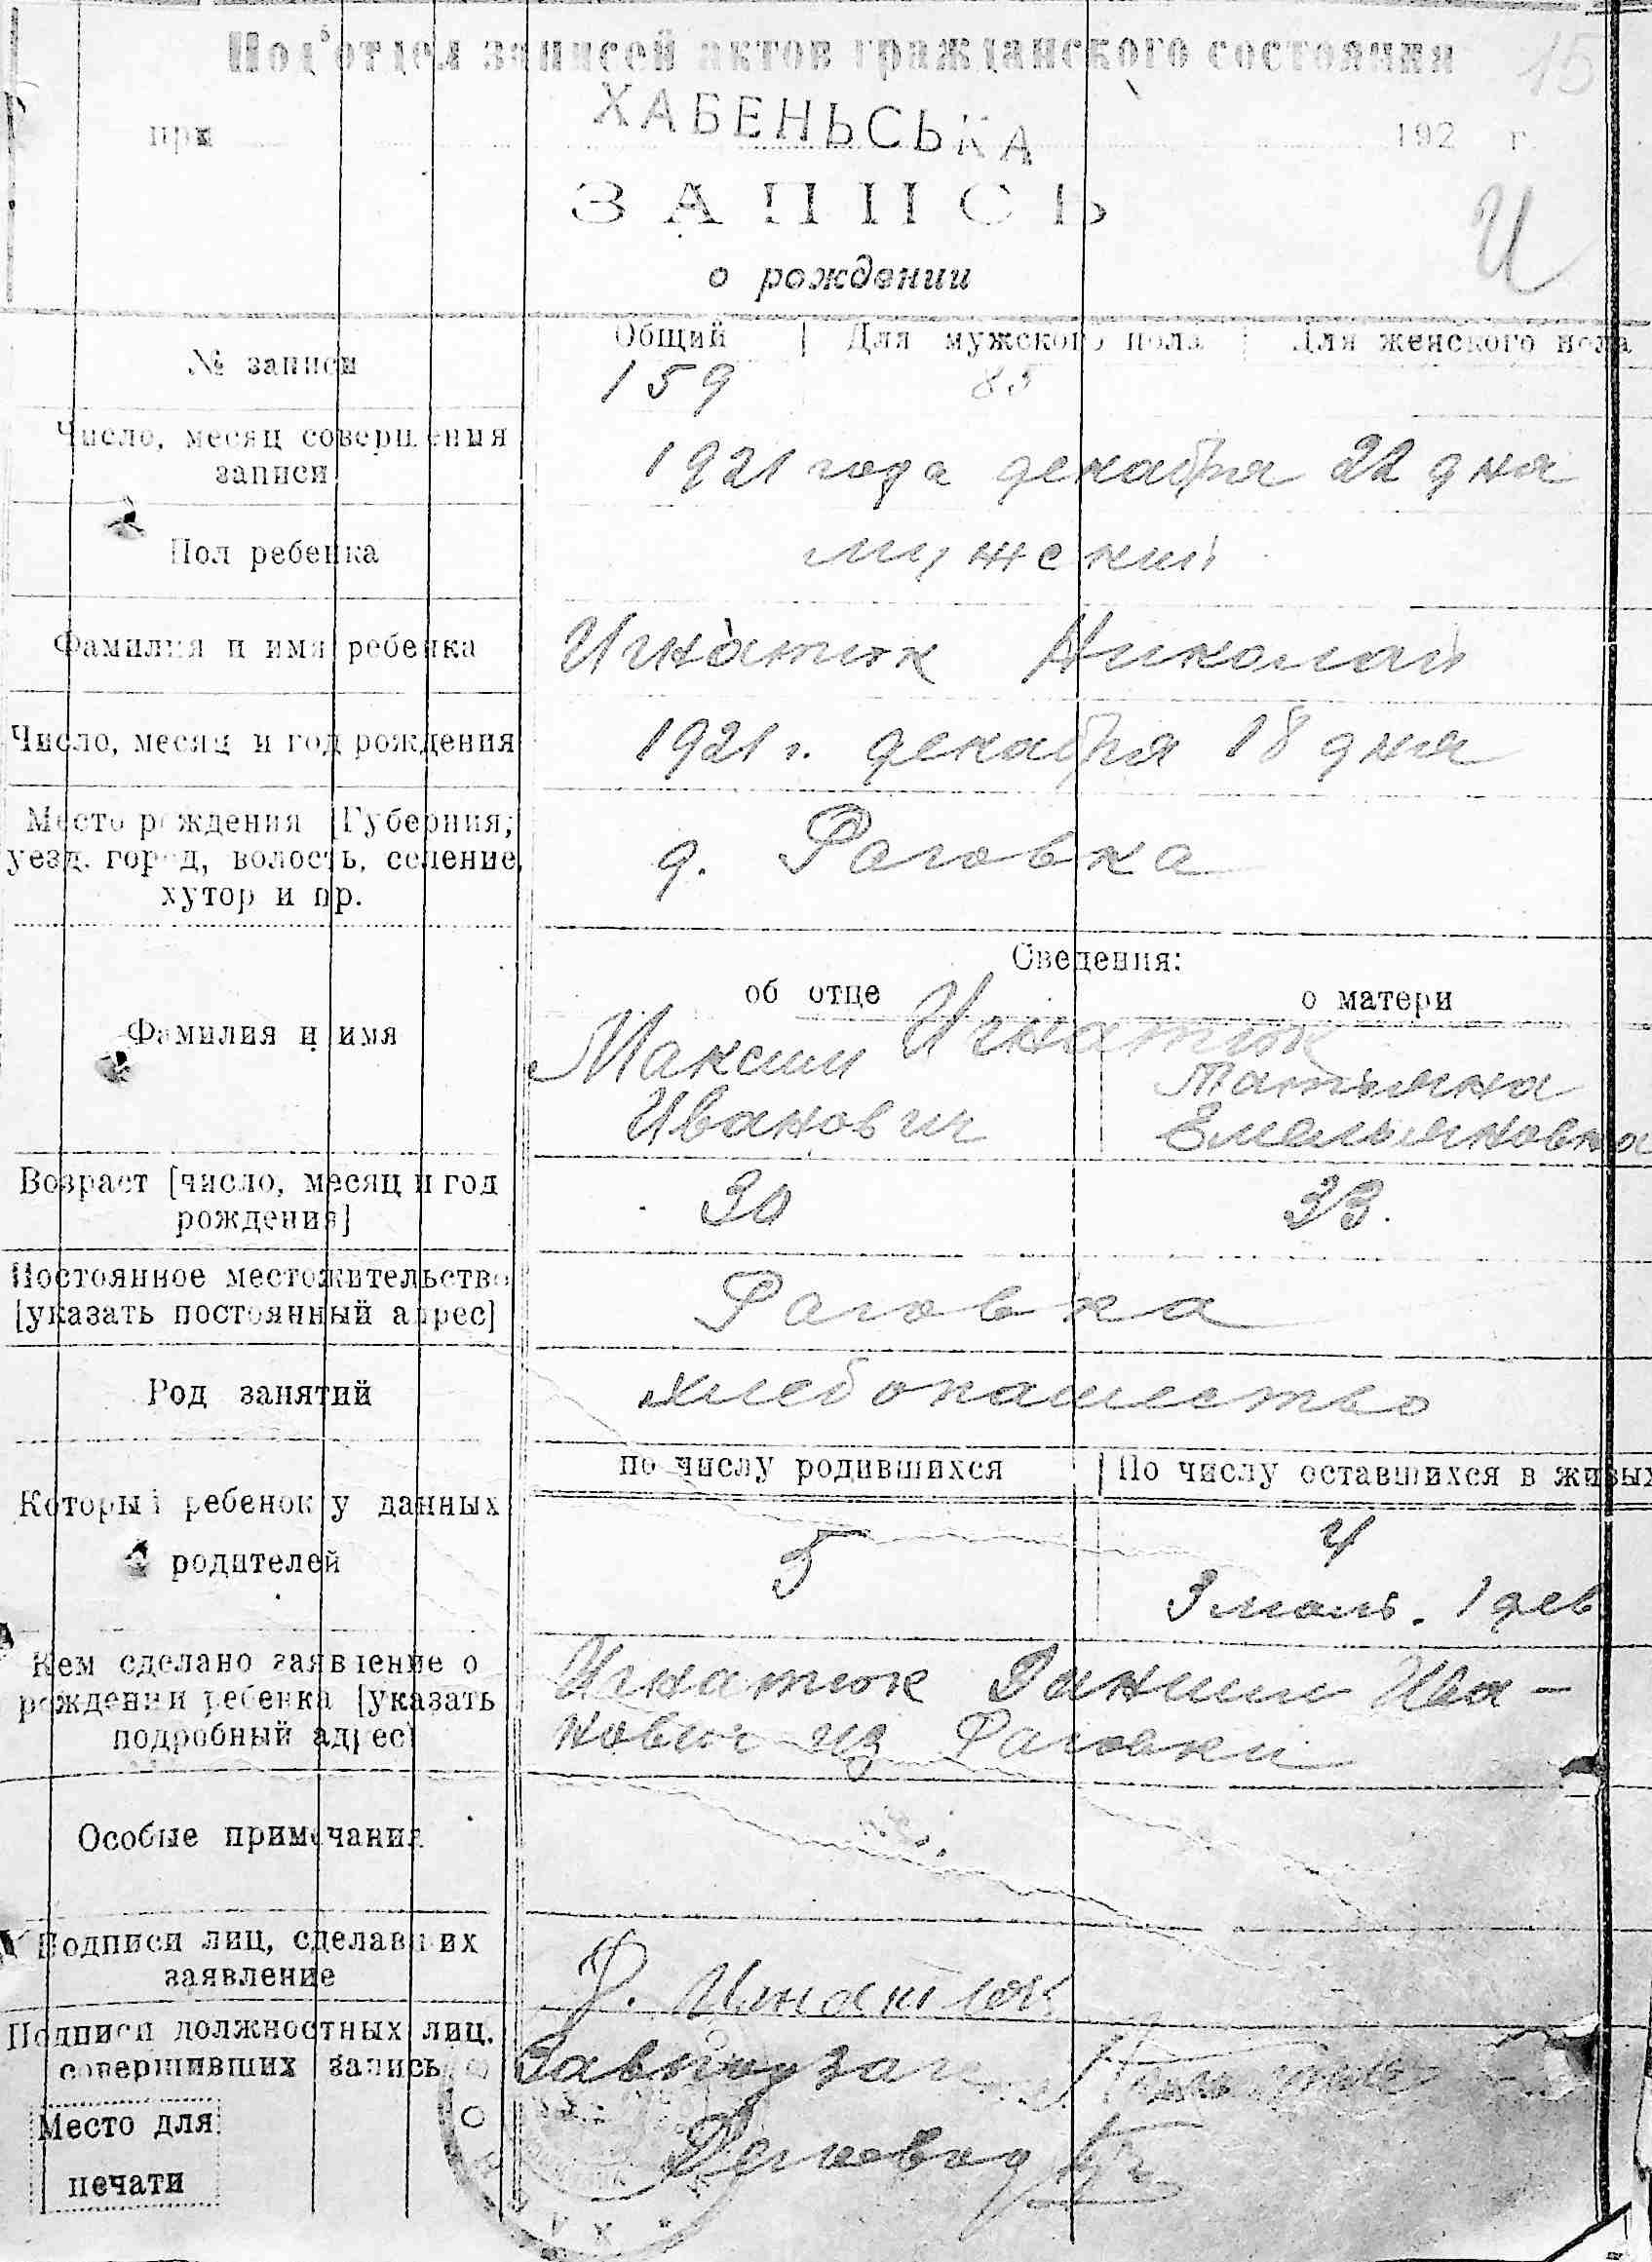 Под'отдел записей актов гражданского состояния 15
при ХАБЕНЬСЬКА 192 г.
ЗАПИСЬ
И
о рождении
№ записи
Общий Для мужского пола Для женского пола
159 85
Число, месяц совершения записи
1921 года декабря 22 дня
Пол ребенка
мужский
Фамилия и имя ребенка
Игнатюк Николай
Число, месяц и год рождения
1921 г. декабря 18 дня
Место рождения [Губерния,
уезд. город, волость, селение,
хутор и пр.
д. Раговка
Сведения:
об отце о матери
Фамилия и имя
Игнатюк
Максим Татьяна
Иванович Емельяновна
Возраст [число, месяц и год
рождения]
30 33.
Постоянное местожительство
[указать постоянный адрес]
Раговка
Род занятий
хлебопашество
по числу родившихся По числу оставшихся в живых
Который ребенок у данных
родителей
5 4
3 маль. 1 дев
Кем сделано заявление о
рождении ребенка [указать
подробный адрес]
Игнатюк Ива-
нович из Раговки
Особые примечания
Подписи лиц, сделавших
заявление
Игнатюк
Подписи должностных лиц.
совершивших запись
Завподзаг
Делевод
Место для
печати